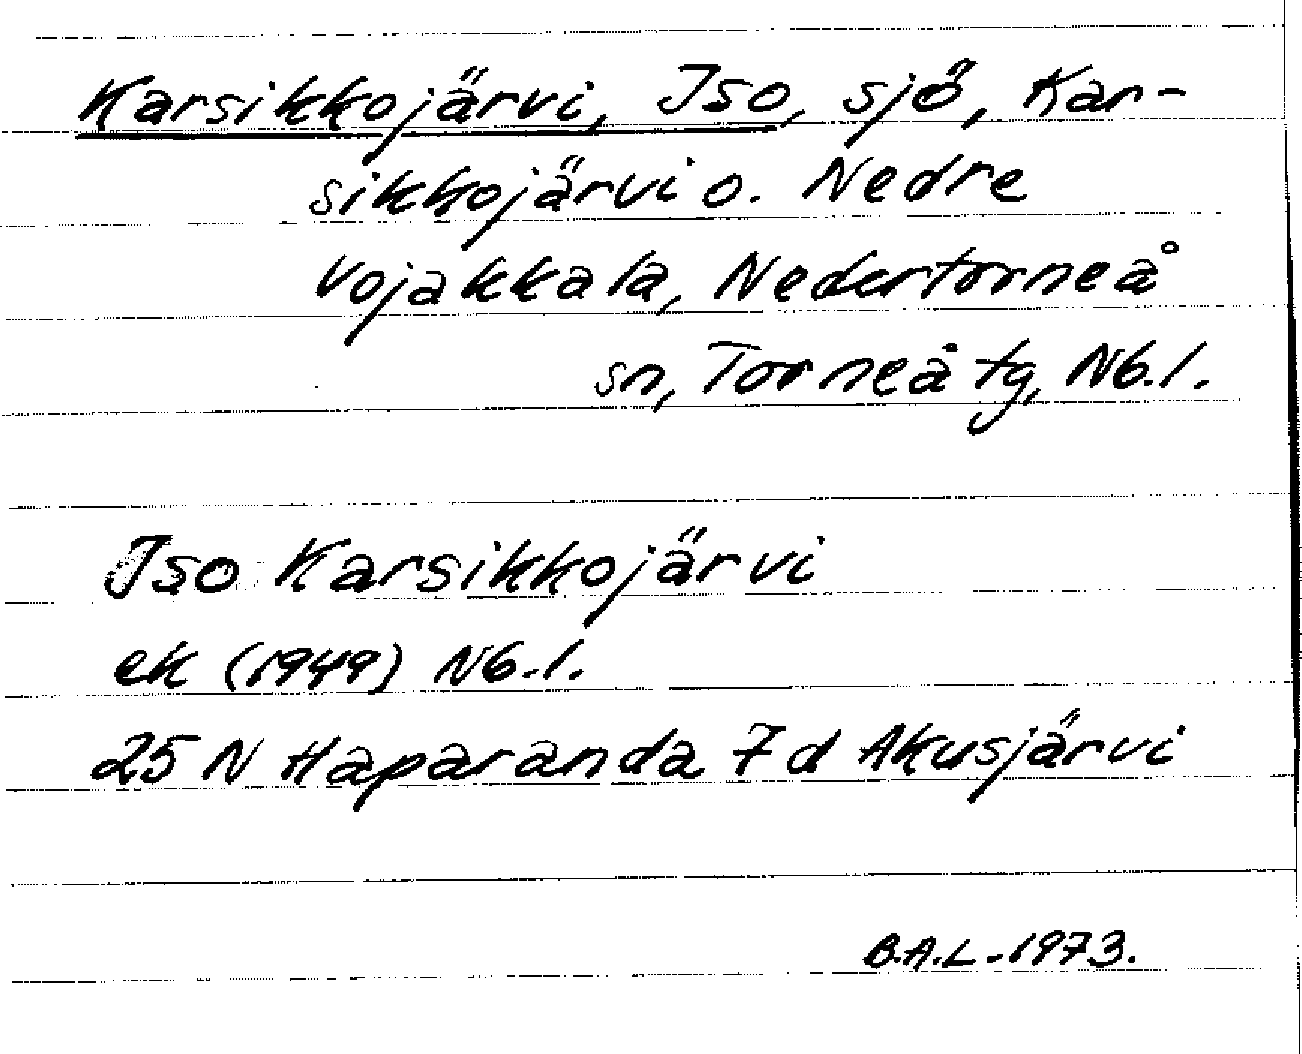 Karsikkojärvi, Iso, sjö, Kar-
sikkojärvi o. Nedre
Vojakkala, Nedertorneå
sn, Torneå tg, Nb.l.
Iso Karsikkojärvi
ek (1949) Nb.l.
25 N Haparanda 7d Akusjärvi
B.A.L. 1973.